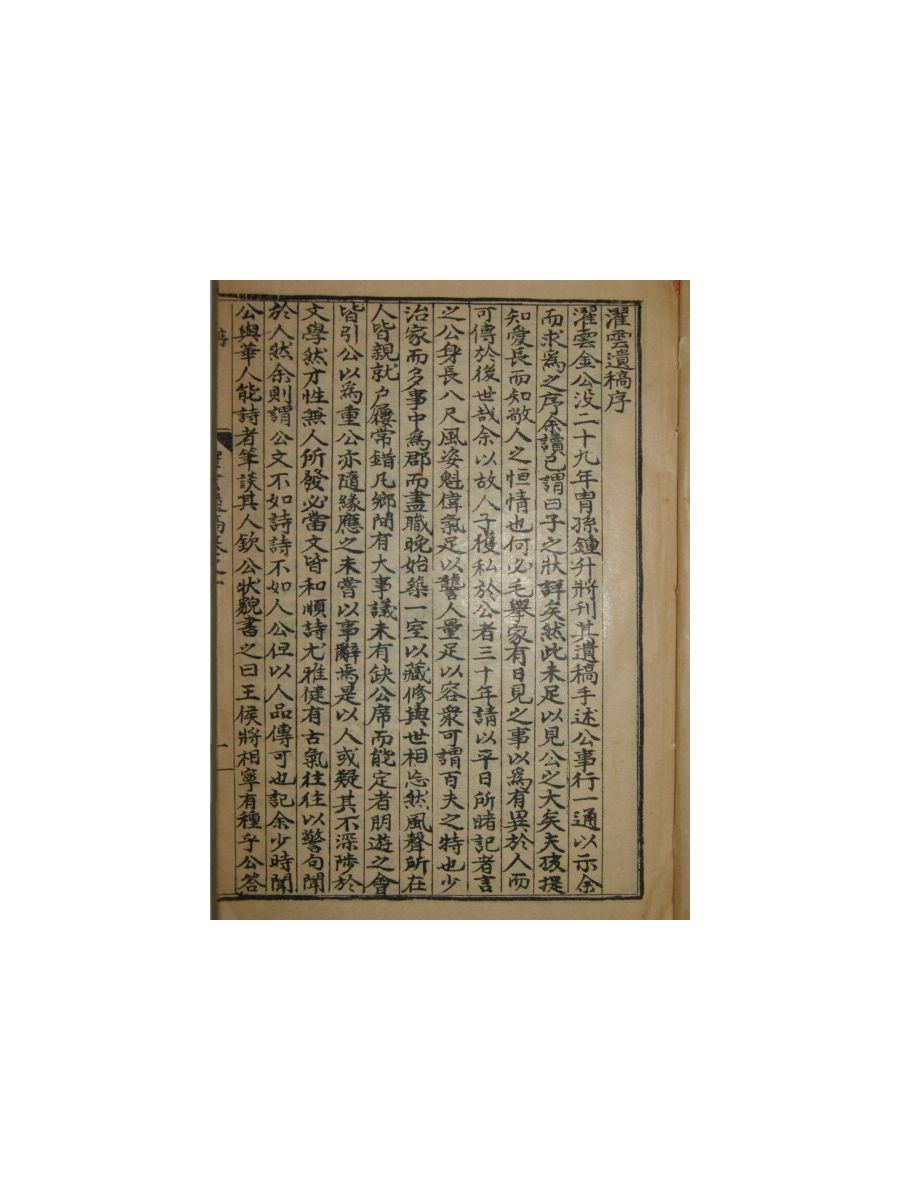 濯雲遺稿序
濯雲金公没二十九年冑孫鍾升將刊其遺稿手述公事行一通以示余
而求爲之序余讀已謂曰子之狀詳矣然此未足以見公之大矣夫孩提
知愛長而知敬人之恒情也何必毛擧家有日見之事以爲有異於人而
可傳於後世哉余以故人子獲私於公者三十年請以平日所睹記者言
之公身長八尺風姿魁偉氣足以讋人量足以容衆可謂百夫之特也少
治家而多事中爲郡而盡職晚始築一室以藏修與世相忘然風聲所在
人皆親就户屨常錯凡鄉閭有大事議未有缺公席而能定者朋遊之會
皆引公以爲重公亦隨緣應之未嘗以事辭焉是以人或疑其不深陟於
文學然才性無人所發必當文皆和順詩尤雅健有古氣往往以警句聞
於人然余則謂公文不如詩詩不如人公但以人品傳可也記余少時聞
公與華人能詩者筆談其人欽公狀貌書之曰王侯將相寧有種乎公答